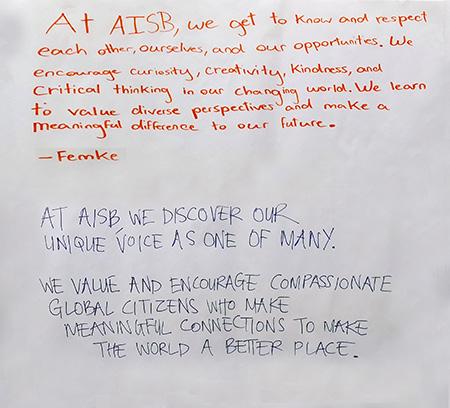 At AISB, we get to know and respect
each other, ourselves, and our opportunities. We
encourage curiosity, creativity, kindness, and
critical thinking in our changing world. We learn
to value diverse perspectives and make a
meaningful difference to our future.
— Femke
AT AISB, WE DISCOVER OUR
UNIQUE VOICE AS ONE OF MANY.
WE VALUE AND ENCOURAGE COMPASSIONATE
GLOBAL CITIZENS WHO MAKE
MEANINGFUL CONNECTIONS TO MAKE
THE WORLD A BETTER PLACE.